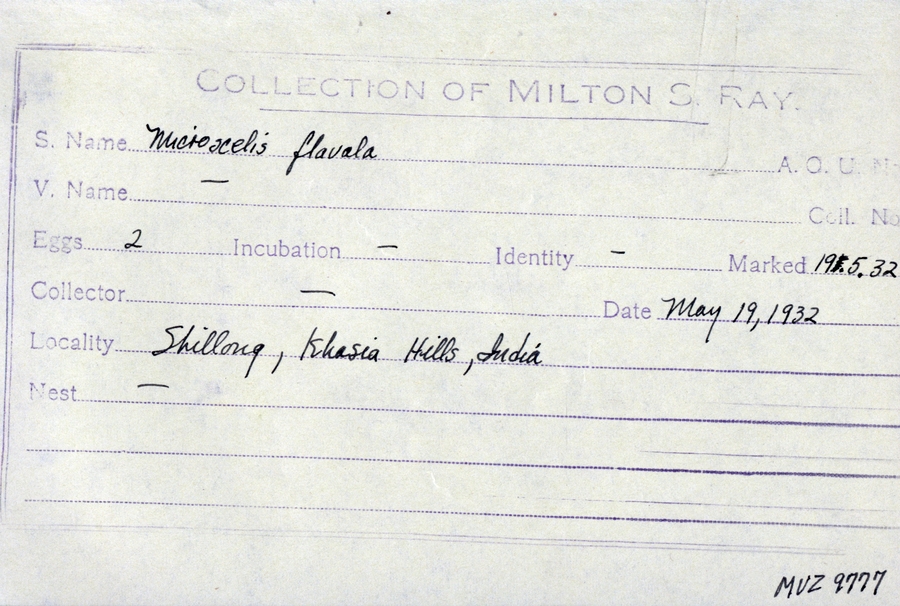 COLLECTION OF MILTON S. RAY.
S. Name Microscelis flavala A. O. U. N
V. Name — Coll. No
Eggs 2 Incubation — Identity — Marked 19.5.32
Collector — Date May 19, 1932
Locality Shillong, Khasia Hills, India
Nest —
MVZ 9777